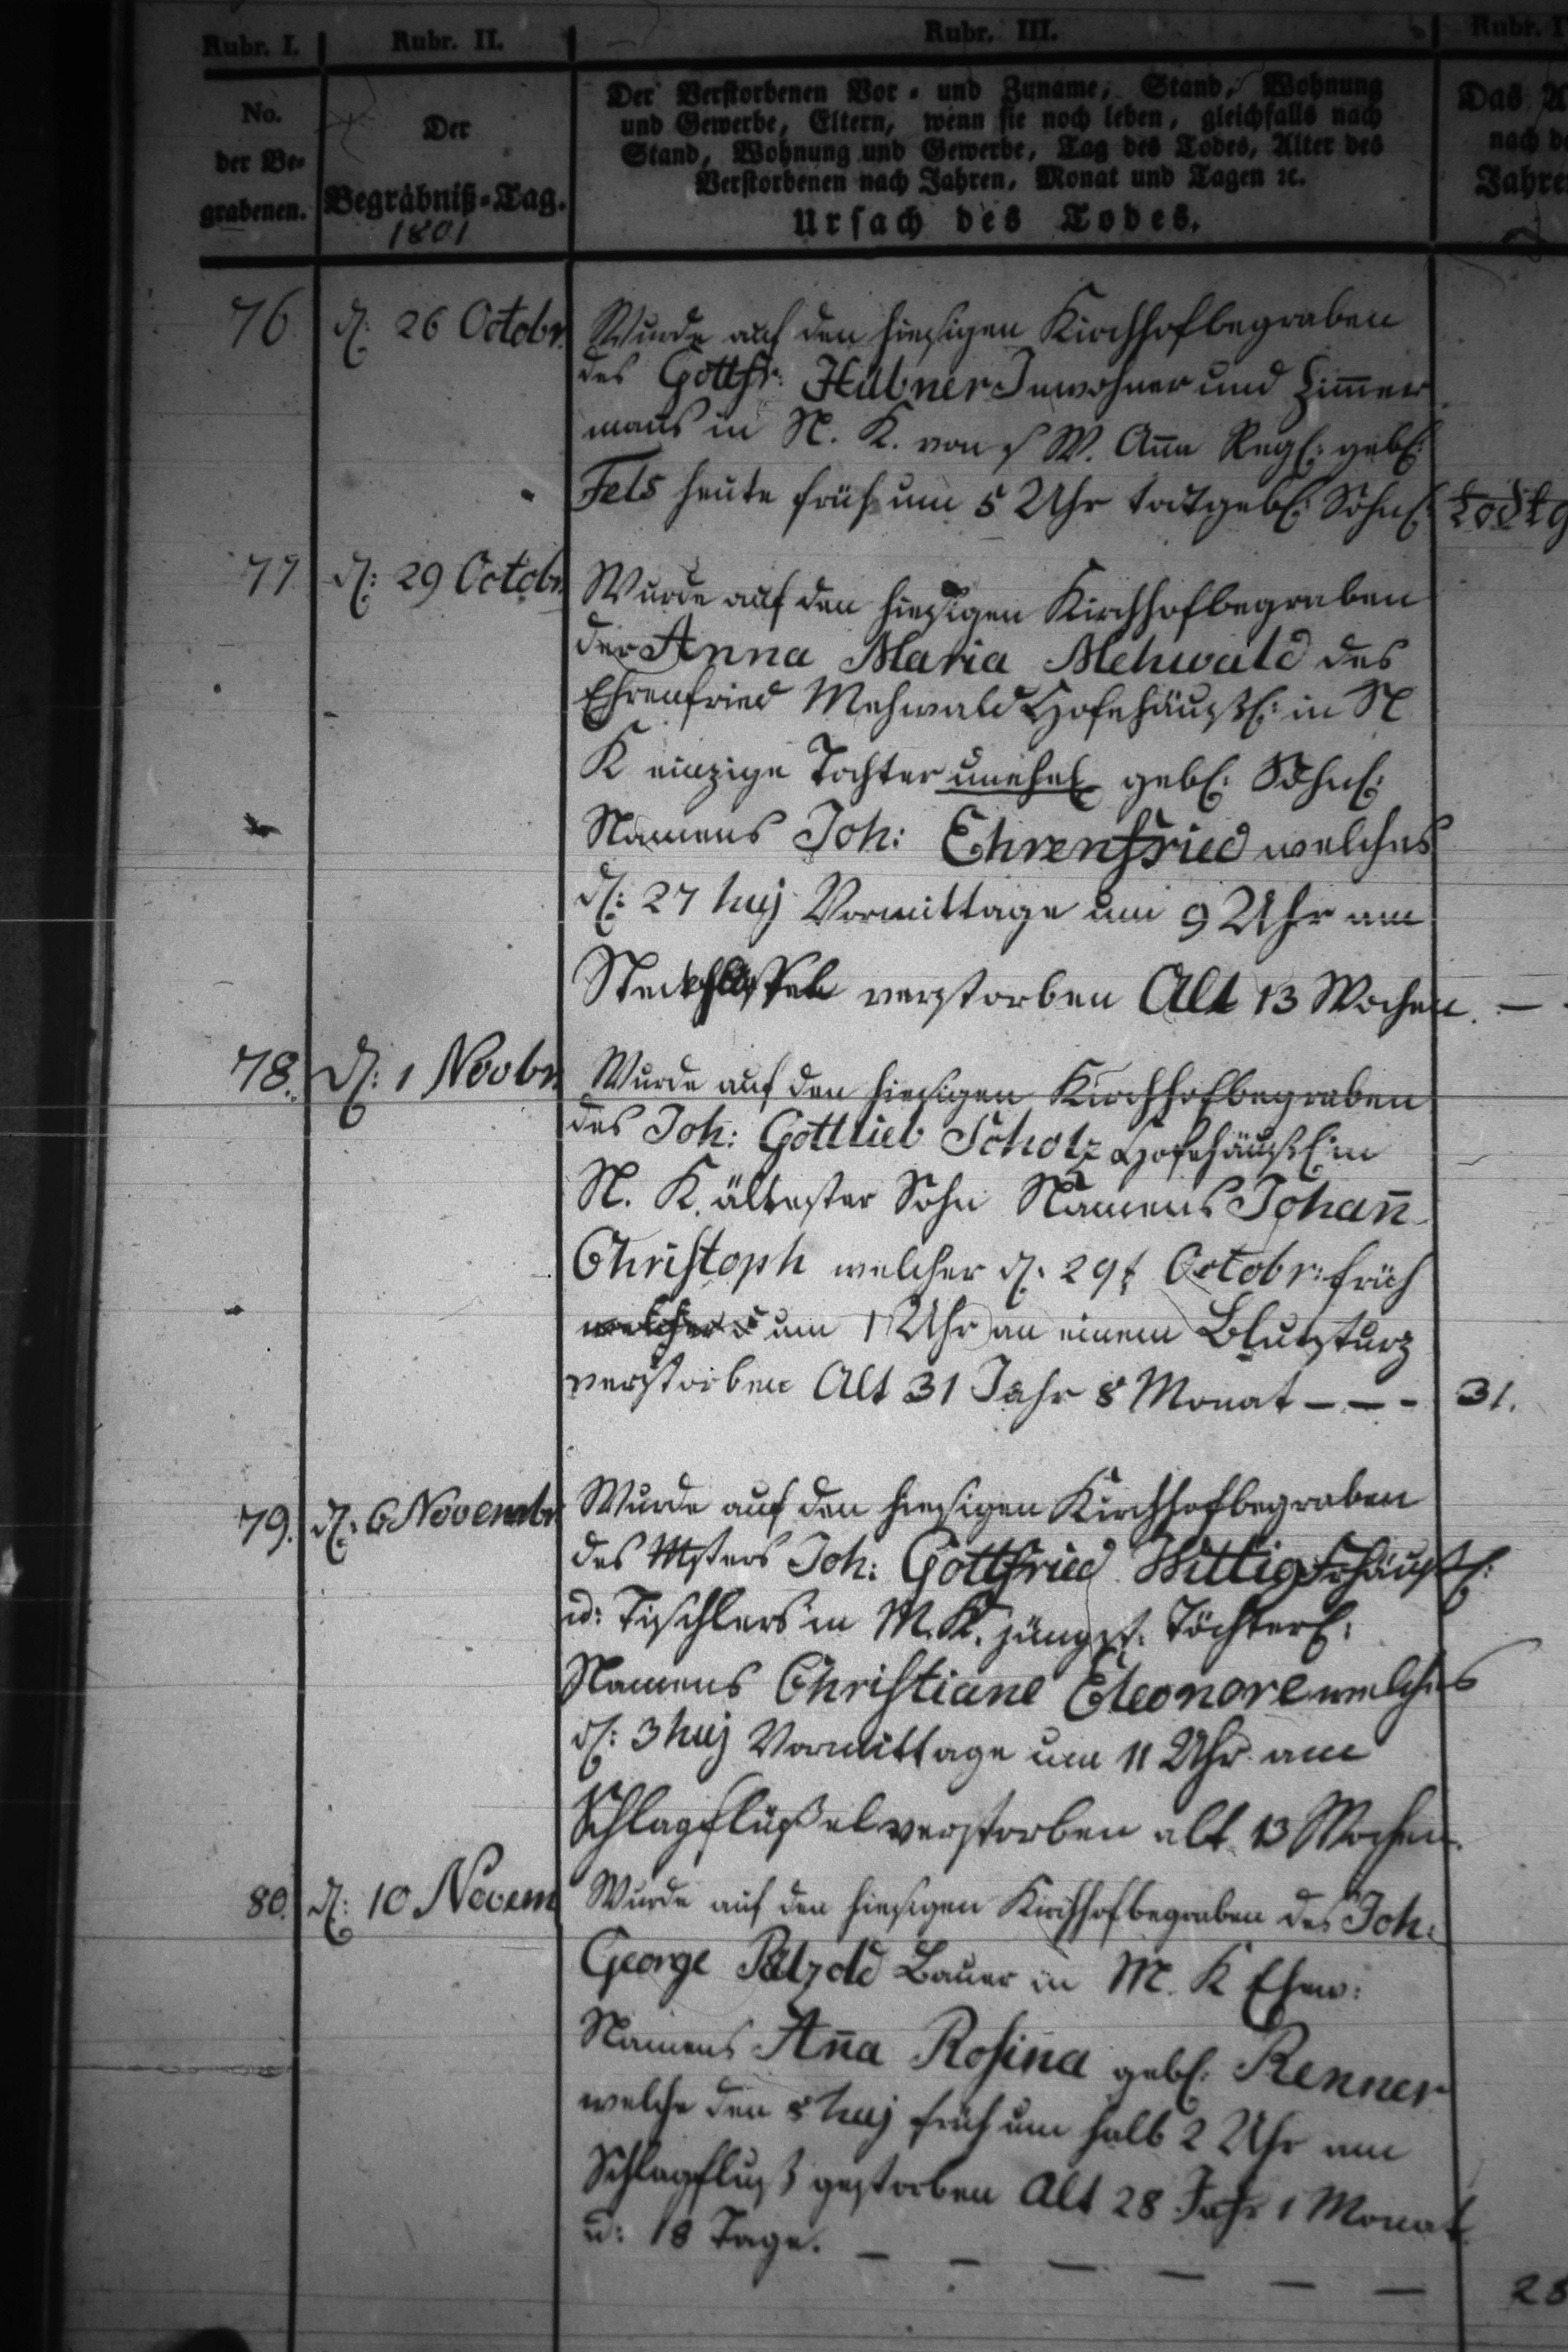 Rubr. I. Rubr. II. Rubr. III. Rubr.
No.
der Be-
grabenen.
Der
Begräbniß-Tag.
1801
Der Verstorbenen Vor- und Zuname, Stand, Wohnung
und Gewerbe, Eltern, wenn sie noch leben, gleichfalls nach
Stand, Wohnung und Gewerbe, Tag des Todes, Alter des
Verstorbenen nach Jahren, Monat und Tagen ꝛc.
Ursach des Todes.
Das
nach
Jahre
76 d: 26 Octobr. Wurde auf den hiesigen Kirchhof begraben
des Gottfr: Hübner Inwohner und Zim̄er
mans in N. K. von s W. An̄a Regl: gebl:
Fels heute früh um 5 Uhr todtgebl: Söhnl: todtg
77 d: 29 Octobr Wurde auf den hiesigen Kirchhof begraben
der Anna Maria Mehwald des
Ehrenfried Mehwald Hofehäusl: in N
K einzige Tochter unehel gebl: Söhnl:
Namens Joh: Ehrenfried welches
d: 27 huj Vormittage um 9 Uhr am
verstorben Alt 13 Wochen. —
78. d: 1 Novbr Wurde auf den hiesigen Kirchhof begraben
des Joh: Gottlieb Scholz Hofehäusl: in
N. K. ältester Sohn Namens Johan̄
Christoph welcher d: 29t Octobr: früh
um 1 Uhr an einem Blutsturz
verstorben Alt 31 Jahr 8 Monat - - - 31.
79. d: 6 Novembr Wurde auf den hiesigen Kirchhof begraben
des Msters Joh: Gottfried Wittig Frhäusl:
u: Tischlers in M. K. jüngst. Töchterl:
Namens Christiane Eleonore welches
d: 3 huj Vormittage um 11 Uhr am
Schlagflüßel verstorben alt 13 Wochen
80. d: 10 Novem Wurde auf den hiesigen Kirchhof begraben des Joh:
George Pätzold Bauer in M. K Ehew:
Namens An̄a Rosina gebl: Renner
welche den 8 huj früh um halb 2 Uhr am
Schlagfluß gestorben Alt 28 Jahr 1 Monat
u: 18 Tage. — — — — — — 28